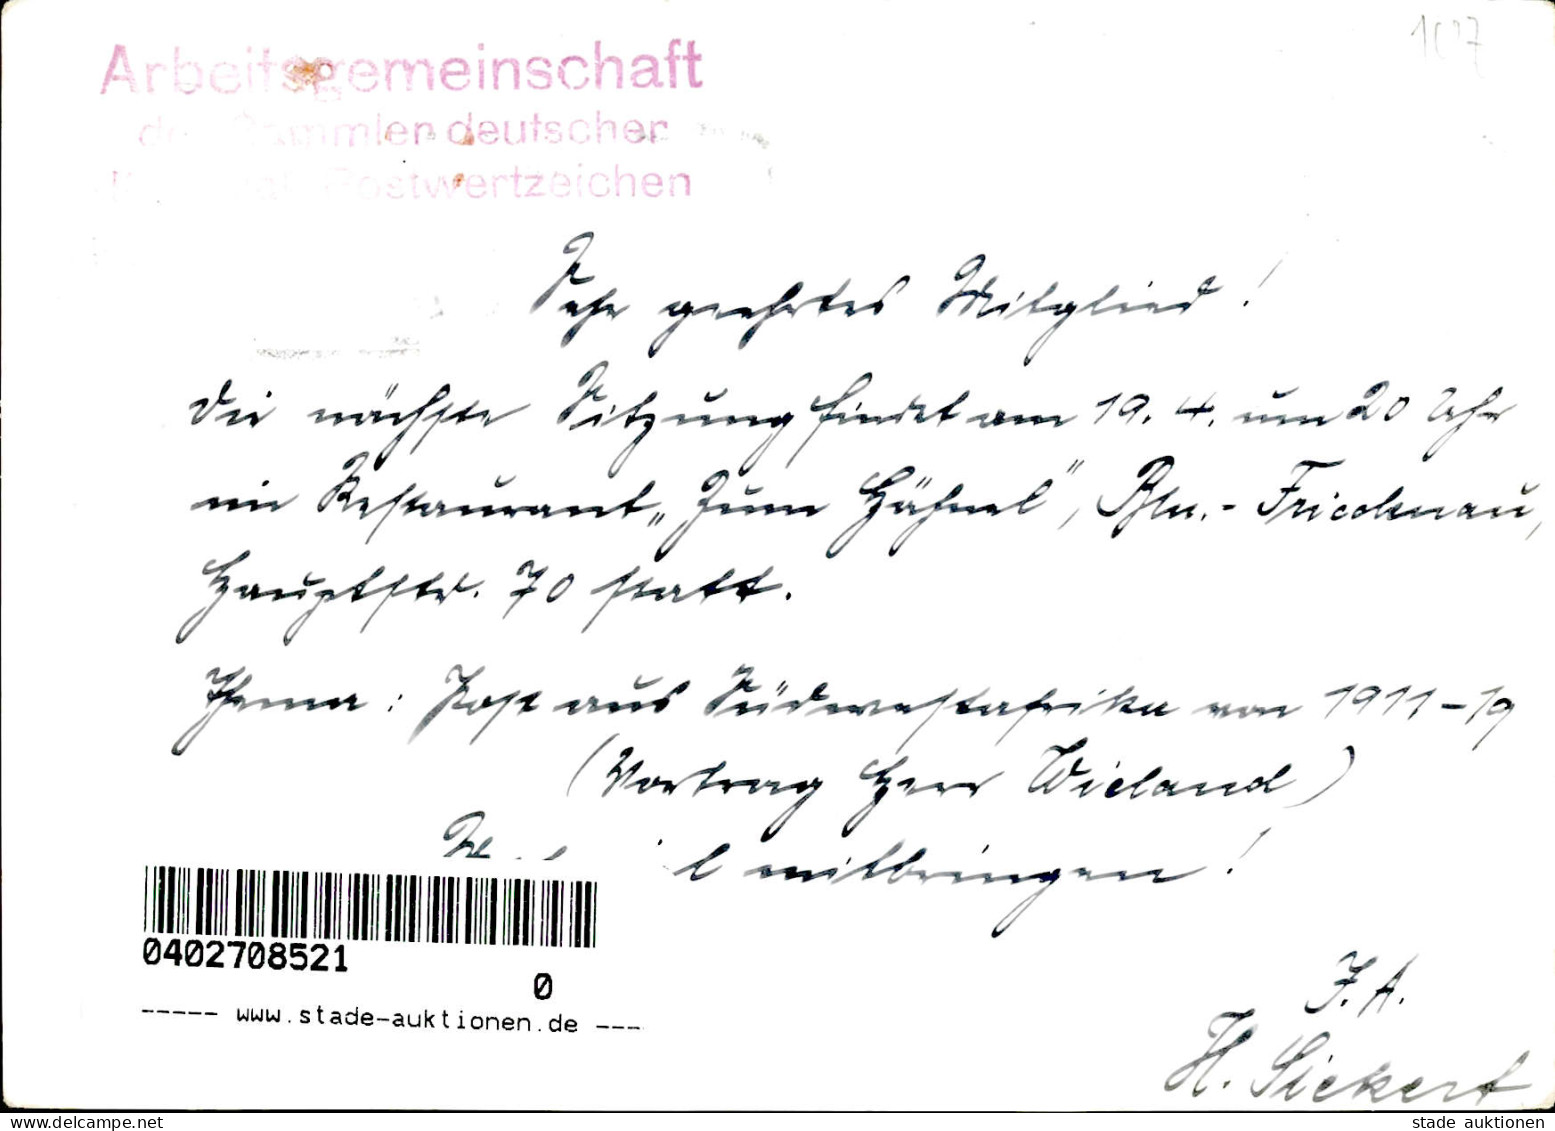 1(27
Arbeitsgemeinschaft
der Sammler deutscher
Kolonial-Postwertzeichen
Sehr geehrtes Mitglied!
Die nächste Sitzung findet am 19.4. um 20 Uhr
im Restaurant „Zum Hähnel", Bln.-Friedenau,
Hauptstr. 70 statt.
Thema: Post aus Südwestafrika von 1911-19
(Vortrag Herr Wieland)
mitbringen!
0402708521
0
----- www.stade-auktionen.de ---
I.A.
H. Siekert
stade auktionen